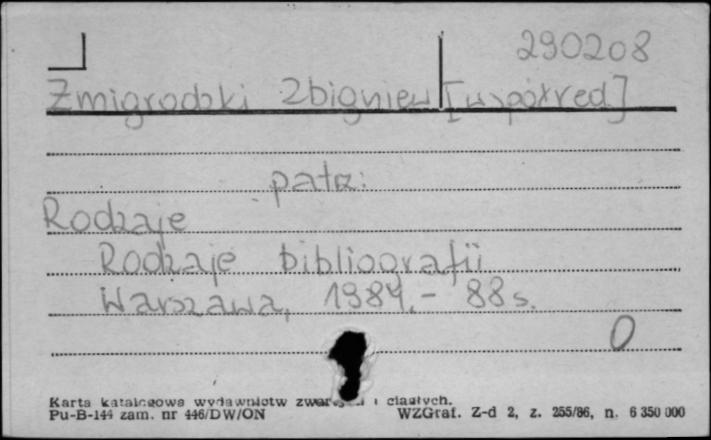 290208
Żmigrodzki Zbigniew [współred]
patrz:
Rodzaje
Rodzaje bibliografii
Warszawa, 1984.- 88 s.
0
Karta katalogowa wydawnictw i ciągłych.
Pu-B-144 zam. nr 446/DW/ON WZGraf. Z-d 2, z. 255/86, n. 6 350 000